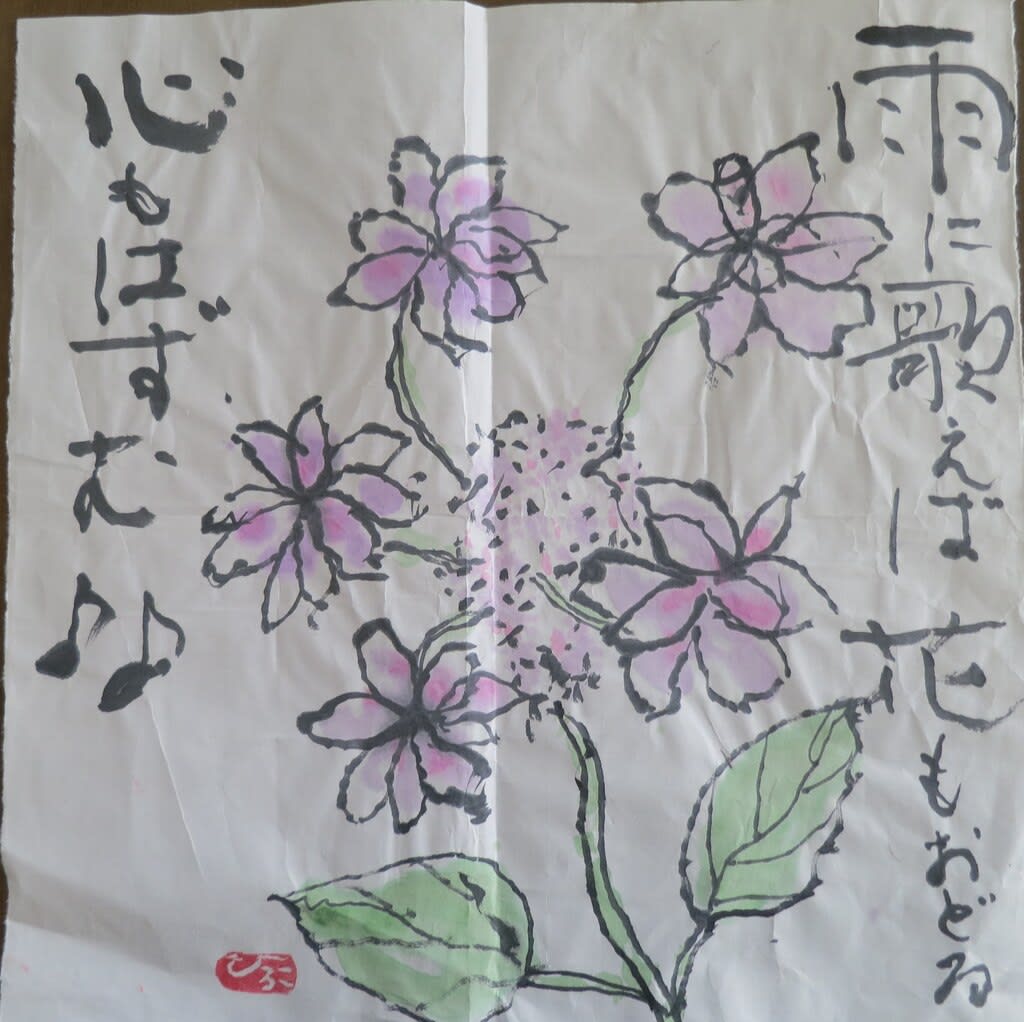 雨に歌えば
花もおどる
心もはずむ♪♪